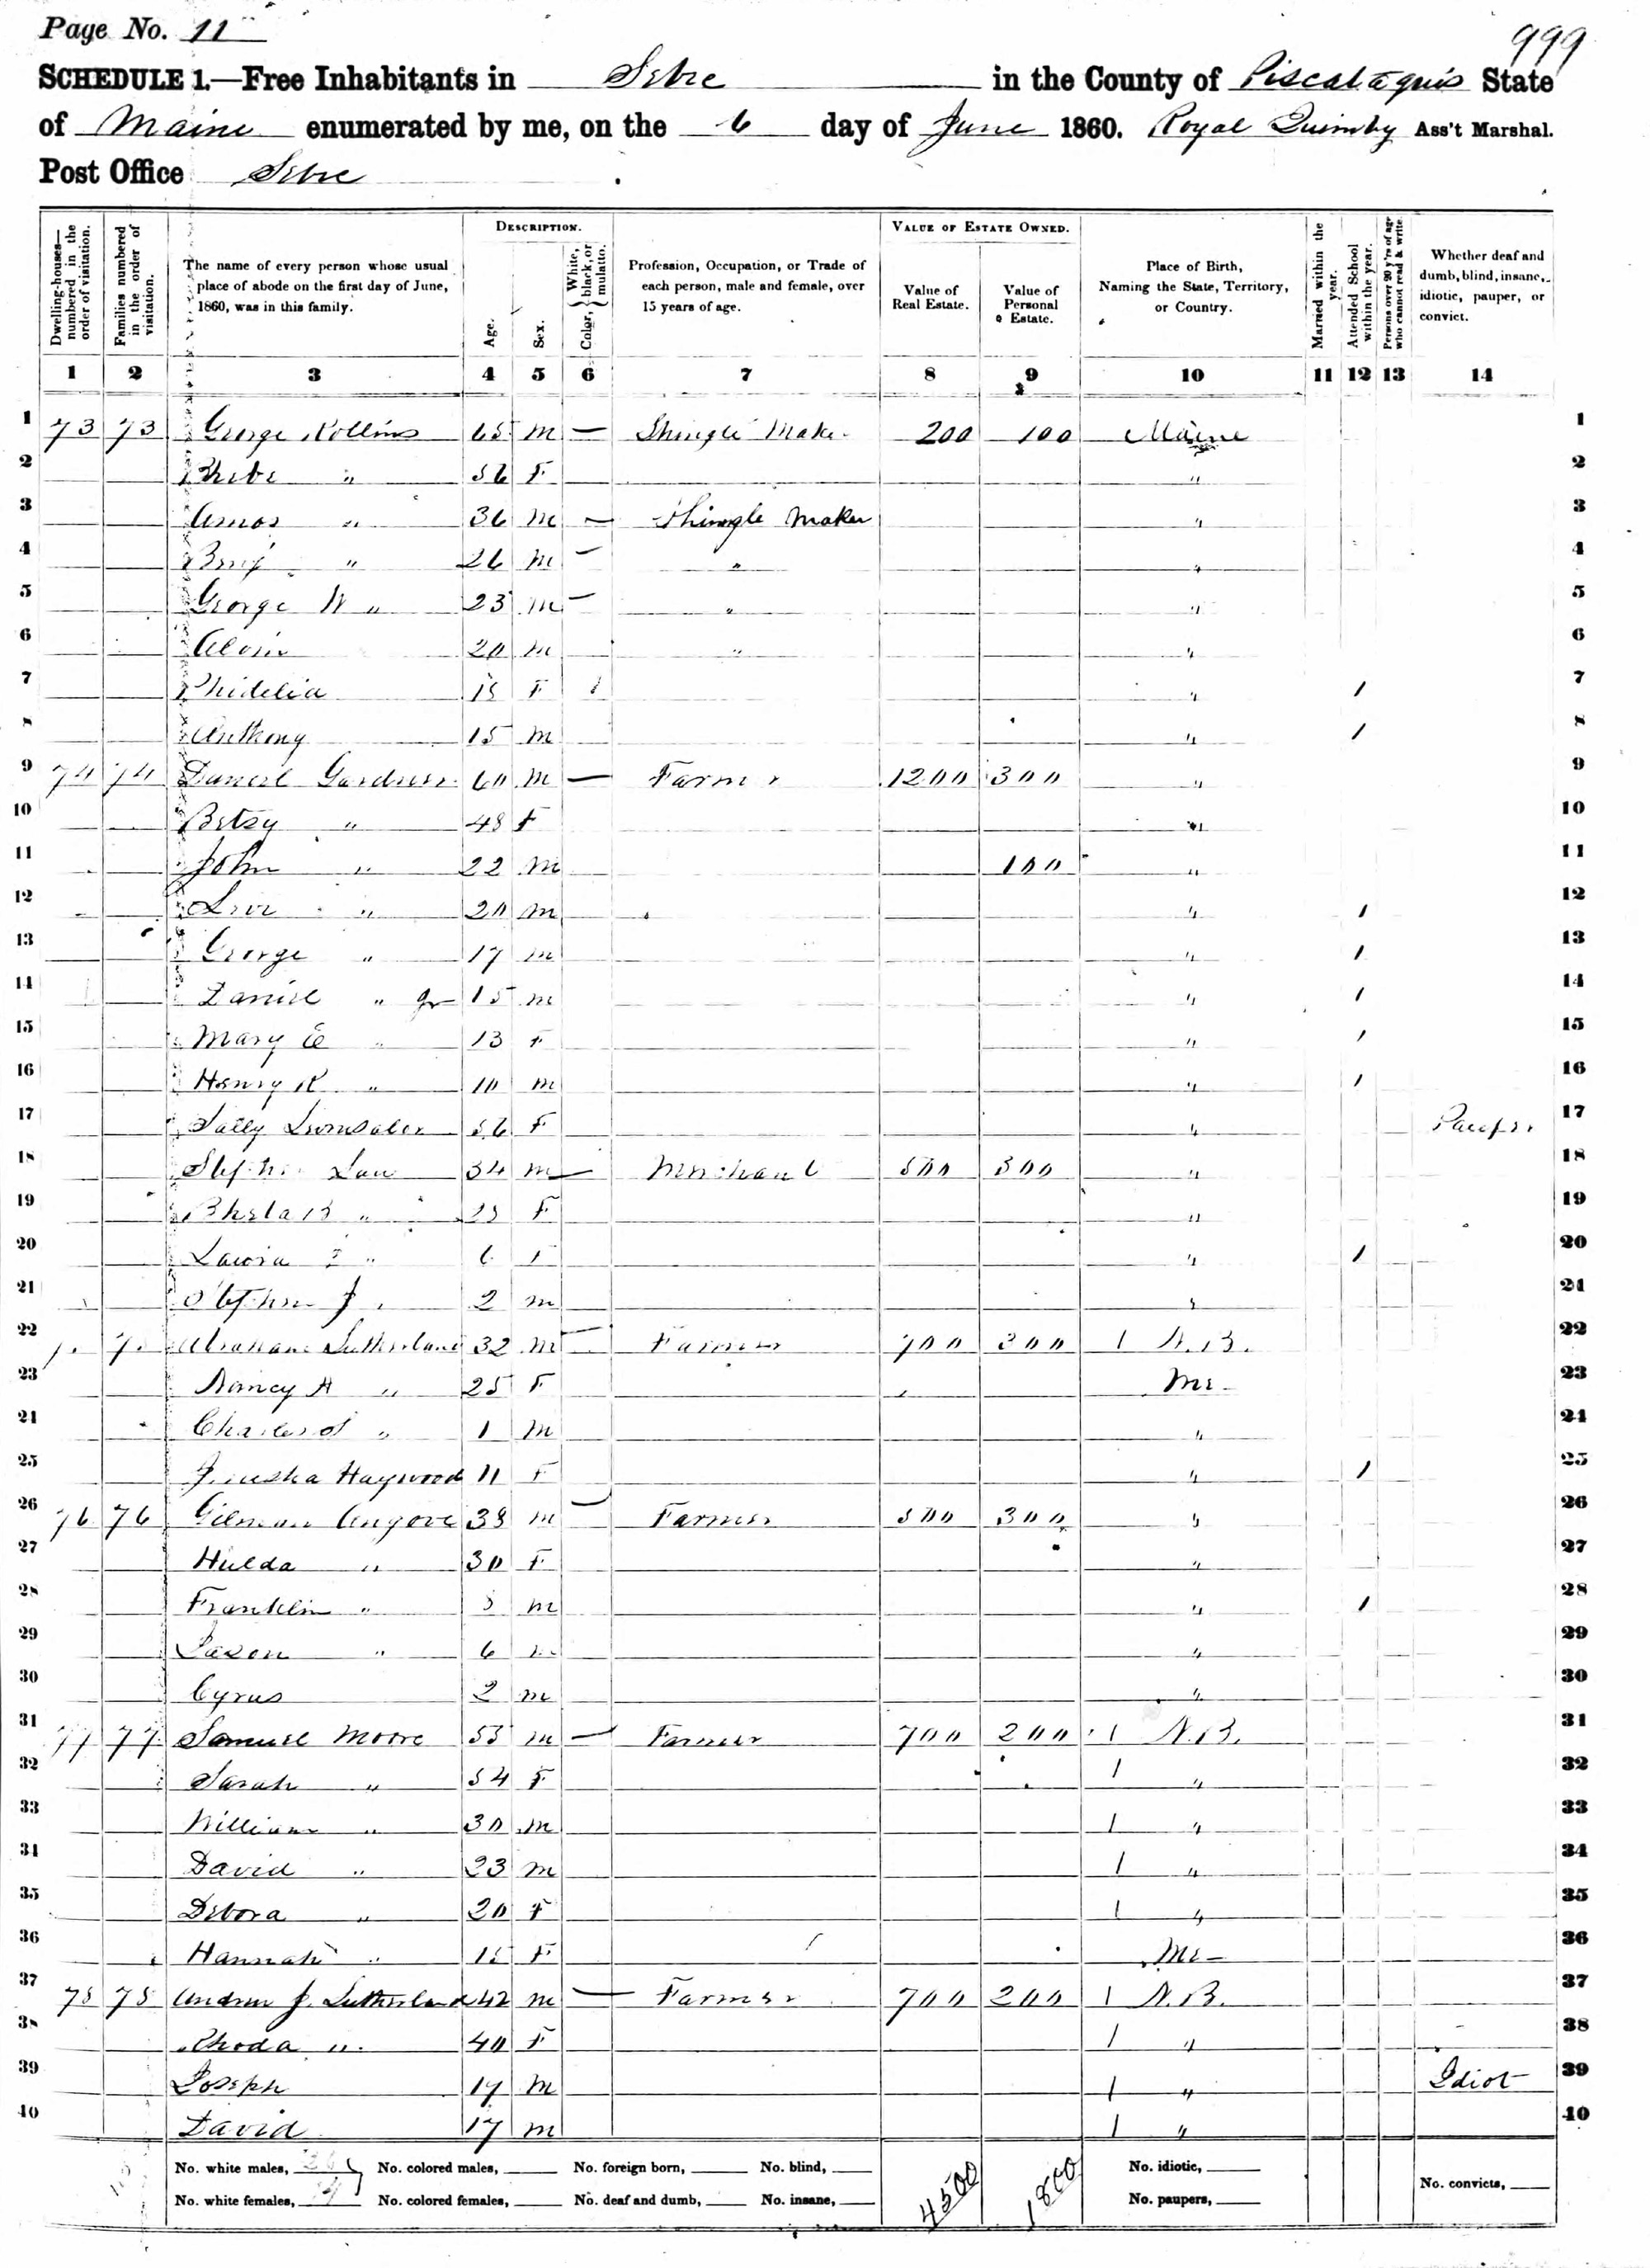 Page No. 11
999
SCHEDULE 1.—Free Inhabitants in Sebec in the County of Piscataquis State
of Maine enumerated by me, on the 6 day of June 1860. Royal Quimby Ass't Marshal.
Post Office Sebec
Dwelling-houses— numbered in the order of visitation.
Families numbered in the order of visitation.
The name of every person whose usual place of abode on the first day of June, 1860, was in this family.
DESCRIPTION.
Age.
Sex.
Color, { White, black, or mulatto.
Profession, Occupation, or Trade of each person, male and female, over 15 years of age.
VALUE OF ESTATE OWNED.
Value of Real Estate.
Value of Personal Estate.
Place of Birth, Naming the State, Territory, or Country.
Married within the year.
Attended School within the year.
Persons over 20 y'rs of age who cannot read & write
Whether deaf and dumb, blind, insane, idiotic, pauper, or convict.
1 2 3 4 5 6 7 8 9 10 11 12 13 14
1 73 73 George Rollins 65 m — Shingle Maker 200 100 Maine 1
2 Phebe " 56 F " 2
3 Amos " 36 m — Shingle Maker " 3
4 Benj " 26 m — " " 4
5 George W " 23 m — " " 5
6 20 m " " 6
7 Phidelia 18 F " / 7
8 Anthony 15 m " / 8
9 74 74 Daniel Gardner 60 m — Farmer 1200 300 " 9
10 Betsy " 48 F " 10
11 John " 22 m 100 " 11
12 " 20 m " / 12
13 George " 17 m " / 13
14 Daniel " Jr 15 m " / 14
15 Mary E " 13 F " / 15
16 Henry R " 10 m " / 16
17 Sally 56 F " Pauper 17
18 Stephen Low 34 m — Merchant 500 300 " 18
19 " F " 19
20 " 6 F " / 20
21 Stephen J " 2 m " 21
22 Abraham Sutherland 32 m — Farmer 700 300 1 N.B. 22
23 Nancy A " 25 F Me 23
24 Charles " 1 m " 24
25 Haywood 11 F " / 25
26 76 76 Gilman 38 m — Farmer 500 300 " 26
27 Hulda " 30 F " 27
28 Franklin " 8 m " / 28
29 " 6 " 29
30 Cyrus 2 m " 30
31 77 77 Samuel Moore 55 m — Farmer 700 200 1 N.B. 31
32 Sarah " 54 F 1 " 32
33 William " 30 m 1 " 33
34 David " 23 m 1 " 34
35 Debora " 20 F 1 " 35
36 Hannah " F Me 36
37 78 78 Andrew J. Sutherland 42 m — Farmer 700 200 1 N.B. 37
38 Rhoda " 40 F 1 " 38
39 Joseph 19 m 1 " Idiot 39
40 David 17 m 1 " 40
No. white males, No. colored males, No. foreign born, No. blind, 4500 1800 No. idiotic,
No. white females, No. colored females, No. deaf and dumb, No. insane, No. paupers, No. convicts,